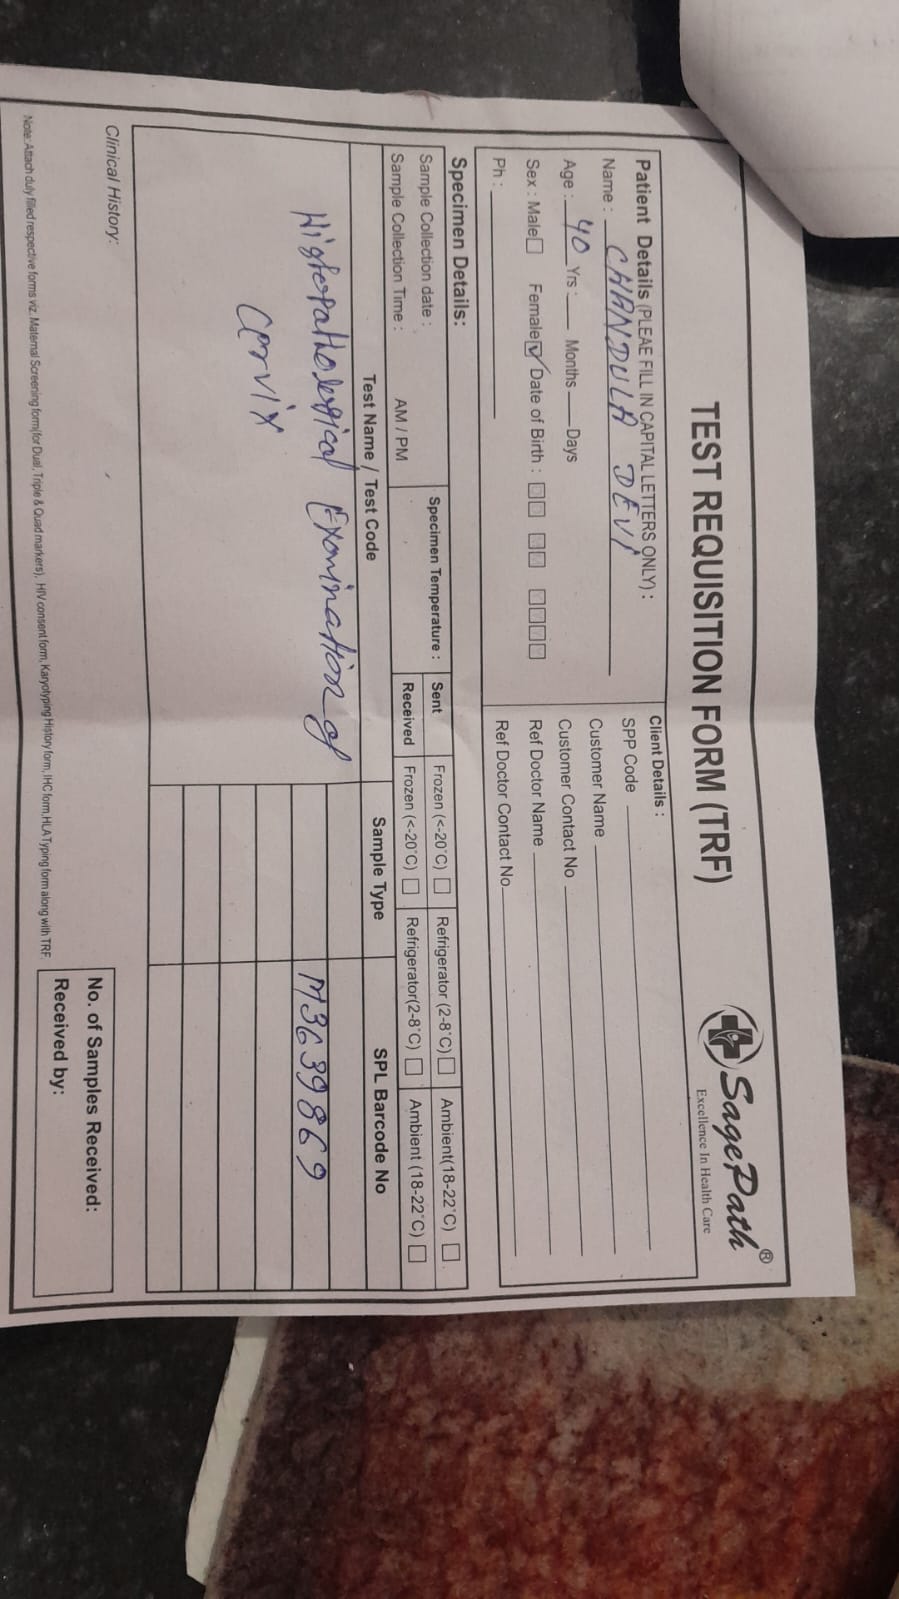 TEST REQUISITION FORM (TRF)
SagePath®
Excellence In Health Care
Patient Details (PLEAE FILL IN CAPITAL LETTERS ONLY) :
Name : CHANDULA DEVI
Age : 40 Yrs : Months Days
Sex : Male Female Date of Birth :
Ph :
Client Details :
SPP Code
Customer Name
Customer Contact No
Ref Doctor Name
Ref Doctor Contact No
Specimen Details:
Sample Collection date :
Sample Collection Time : AM / PM
Specimen Temperature :
Sent Frozen (<-20°C) Refrigerator (2-8°C) Ambient(18-22°C)
Received Frozen (<-20°C) Refrigerator(2-8°C) Ambient (18-22°C)
Test Name / Test Code Sample Type SPL Barcode No
Histopathological Examination of
Cervix
M3639869
Clinical History:
No. of Samples Received:
Received by:
Note: Attach duly filled respective forms viz. Maternal Screening form(for Dual, Triple & Quad markers), HIV consent form, Karyotyping History form, IHC form,HLA Typing form along with TRF.